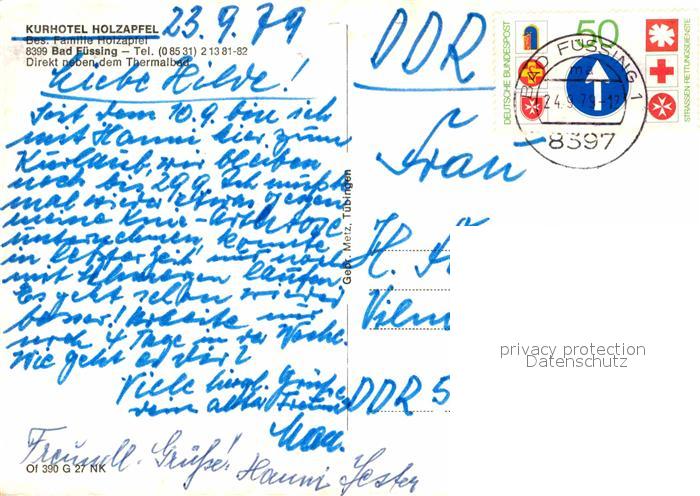 KURHOTEL HOLZAPFEL
Bes. Familie Holzapfel
8399 Bad Füssing – Tel. (0 85 31) 2 13 81-82
Direkt neben dem Thermalbad
23.9.79
Liebe Hilde!
Seit dem 10.9. bin ich
mit Hanni hier zum
Kurlaub, wir bleiben
noch bis 29.9. Ich mußte
mal wieder etwas gegen
meine Knie-Arthrose
unternehmen, konnte
in letzter Zeit nur noch
mit laufen.
Es geht schon wieder
besser! Arbeite nur
noch 4 Tage in der Woche.
Wie geht es dir?
Viele herzl. Grüße
dein alter Freund
Max.
Freundl. Grüße! Hanni
Of 390 G 27 NK
Gebr. Metz, Tübingen
DDR
Frau
H.
DDR 5
DEUTSCHE BUNDESPOST
50
STRASSEN-RETTUNGSDIENSTE
BAD FÜSSING 1
24.9.79-17
8397
privacy protection
Datenschutz